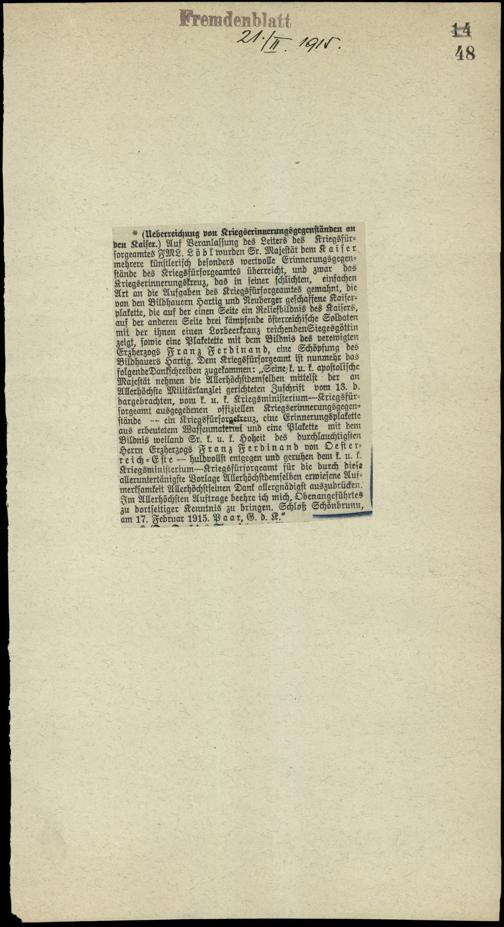 Fremdenblatt
21./II. 1915.
14
48
* (Ueberreichung von Kriegserinnerungsgegenständen an
den Kaiser.) Auf Veranlassung des Leiters des Kriegsfür-
sorgeamtes FML. Löbl wurden Sr. Majestät dem Kaiser
mehrere künstlerisch besonders wertvolle Erinnerungsgegen-
stände des Kriegsfürsorgeamtes überreicht, und zwar das
Kriegserinnerungskreuz, das in seiner schlichten, einfachen
Art an die Aufgaben des Kriegsfürsorgeamtes gemahnt, die
von den Bildhauern Hartig und Neuberger geschaffene Kaiser-
plakette, die auf der einen Seite ein Reliefbildnis des Kaisers,
auf der anderen Seite drei kämpfende österreichische Soldaten
mit der ihnen einen Lorbeerkranz reichenden Siegesgöttin
zeigt, sowie eine Plakette mit dem Bildnis des verewigten
Erzherzogs Franz Ferdinand, eine Schöpfung des
Bildhauers Hartig. Dem Kriegsfürsorgeamt ist nunmehr das
folgende Dankschreiben zugekommen: „Seine k. u. k. apostolische
Majestät nehmen die Allerhöchstdemselben mittelst der an
Allerhöchste Militärkanzlei gerichteten Zuschrift vom 13. d.
dargebrachten, vom k. u. k. Kriegsministerium—Kriegsfür-
sorgeamt ausgegebenen offiziellen Kriegserinnerungsgegen-
stände -- ein Kriegsfürsorgekreuz, eine Erinnerungsplakette
aus erbeutetem Waffenmaterial und eine Plakette mit dem
Bildnis weiland Sr. k. u. k. Hoheit des durchlauchtigsten
Herrn Erzherzogs Franz Ferdinand von Oester-
reich-Este — huldvollst entgegen und geruhen dem k. u. k.
Kriegsministerium—Kriegsfürsorgeamt für die durch diese
alleruntertänigste Vorlage Allerhöchstdemselben erwiesene Auf-
merksamkeit Allerhöchstseinen Dank allergnädigst auszudrücken.
Im Allerhöchsten Auftrage beehre ich mich, Obenangeführtes
zu dortseitiger Kenntnis zu bringen. Schloß Schönbrunn,
am 17. Februar 1915. Paar, G. d. K."